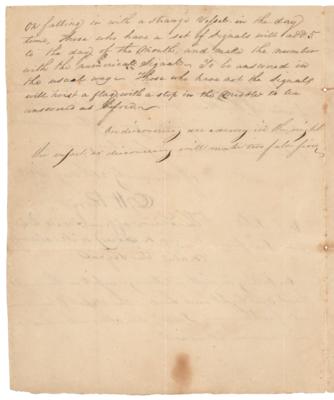 On falling in with a strange Vessel in the day
time, Those who have a set of Signals will add 5
to the day of the Month, and make the number
with the numerical Signals. To be answered in
the usual way. Those who have not the Signals
will hoist a flag with a stop in the middle to be
answered as before
On discovering an enemy in the night
the vessel so discovering will make two false fires